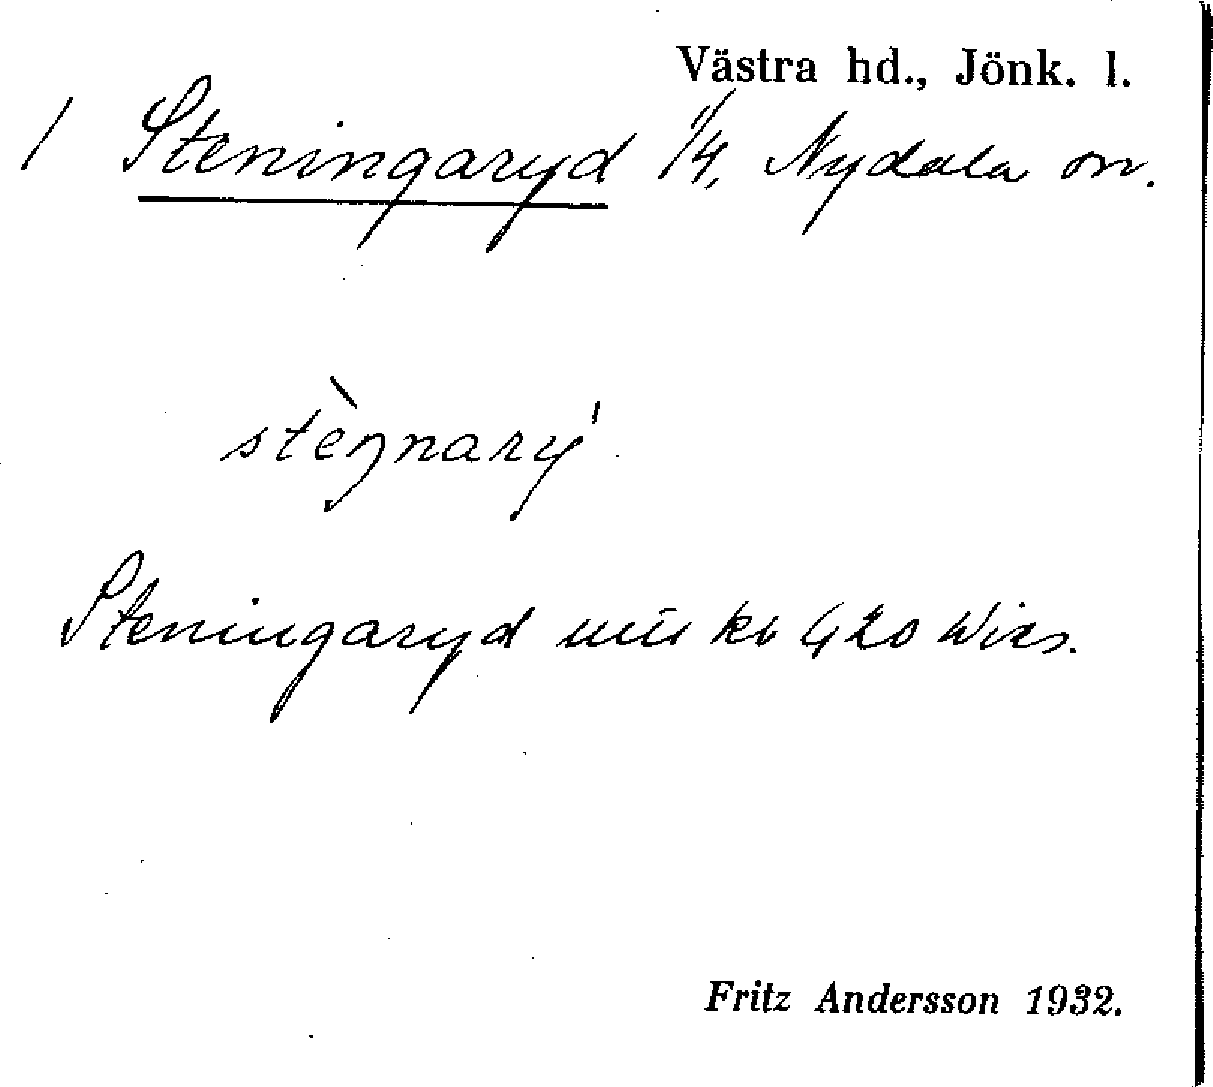 Västra hd., Jönk. l.
/ Steningaryd 1/4, Nydala sn.
stèŋnary'
Steningaryd
Fritz Andersson 1932.